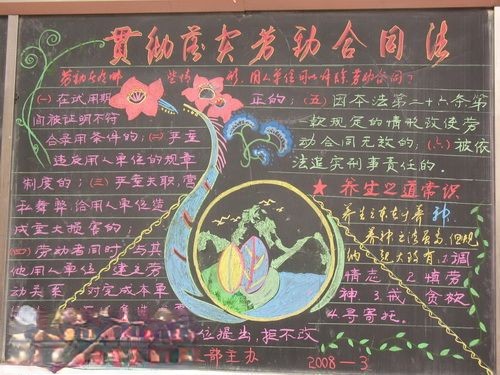 贯彻落实劳动合同法
劳动者有哪些情形,用人单位可以解除劳动合同?
(一)在试用期
间被证明不符
合录用条件的;(二)严重
违反用人单位的规章
制度的;(三)严重失职,营
私舞弊,给用人单位造
成重大损害的;
(四)劳动者同时与其
他用人单位建立劳
动关系 对完成本单
位提出,拒不改
正的;(五)因本法第二十六条第
一款规定的情形致使劳
动合同无效的;(六)被依
法追究刑事责任的。
★养生之道常识
养生之本在于养神
养神之法虽多,但规
纳 起大致有:1.调
情志 2.慎劳
神 3.戒贪欲
4.寻寄托
部主办
2008-3